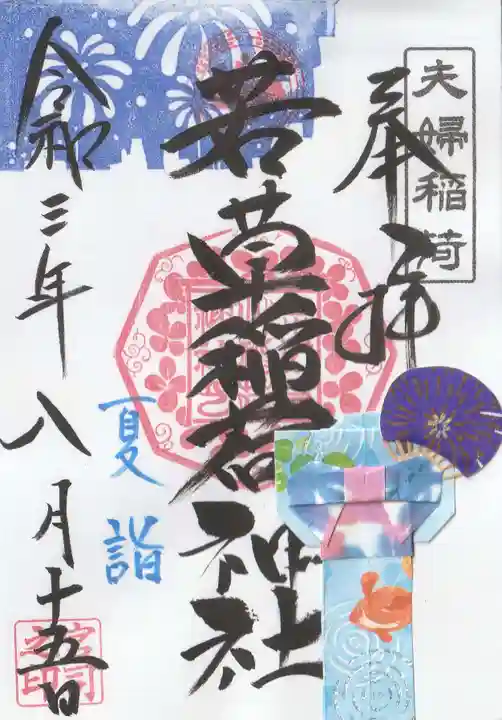 夫婦稲荷
奉拝
若草稲荷神社
夏詣
令和三年八月十五日
宮司之印